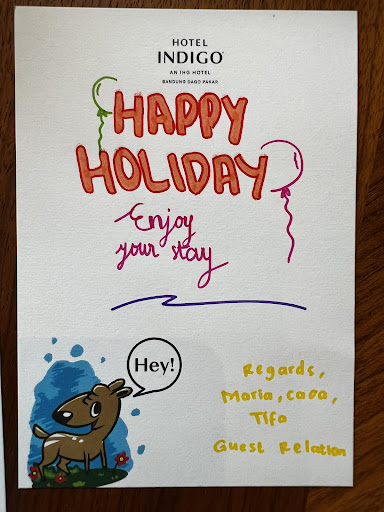 HOTEL
INDIGO
AN IHG HOTEL
BANDUNG DAGO PAKAR
HAPPY
HOLIDAY
Enjoy
your stay
Hey!
Regards,
Maria, caca,
Tifa
Guest Relation